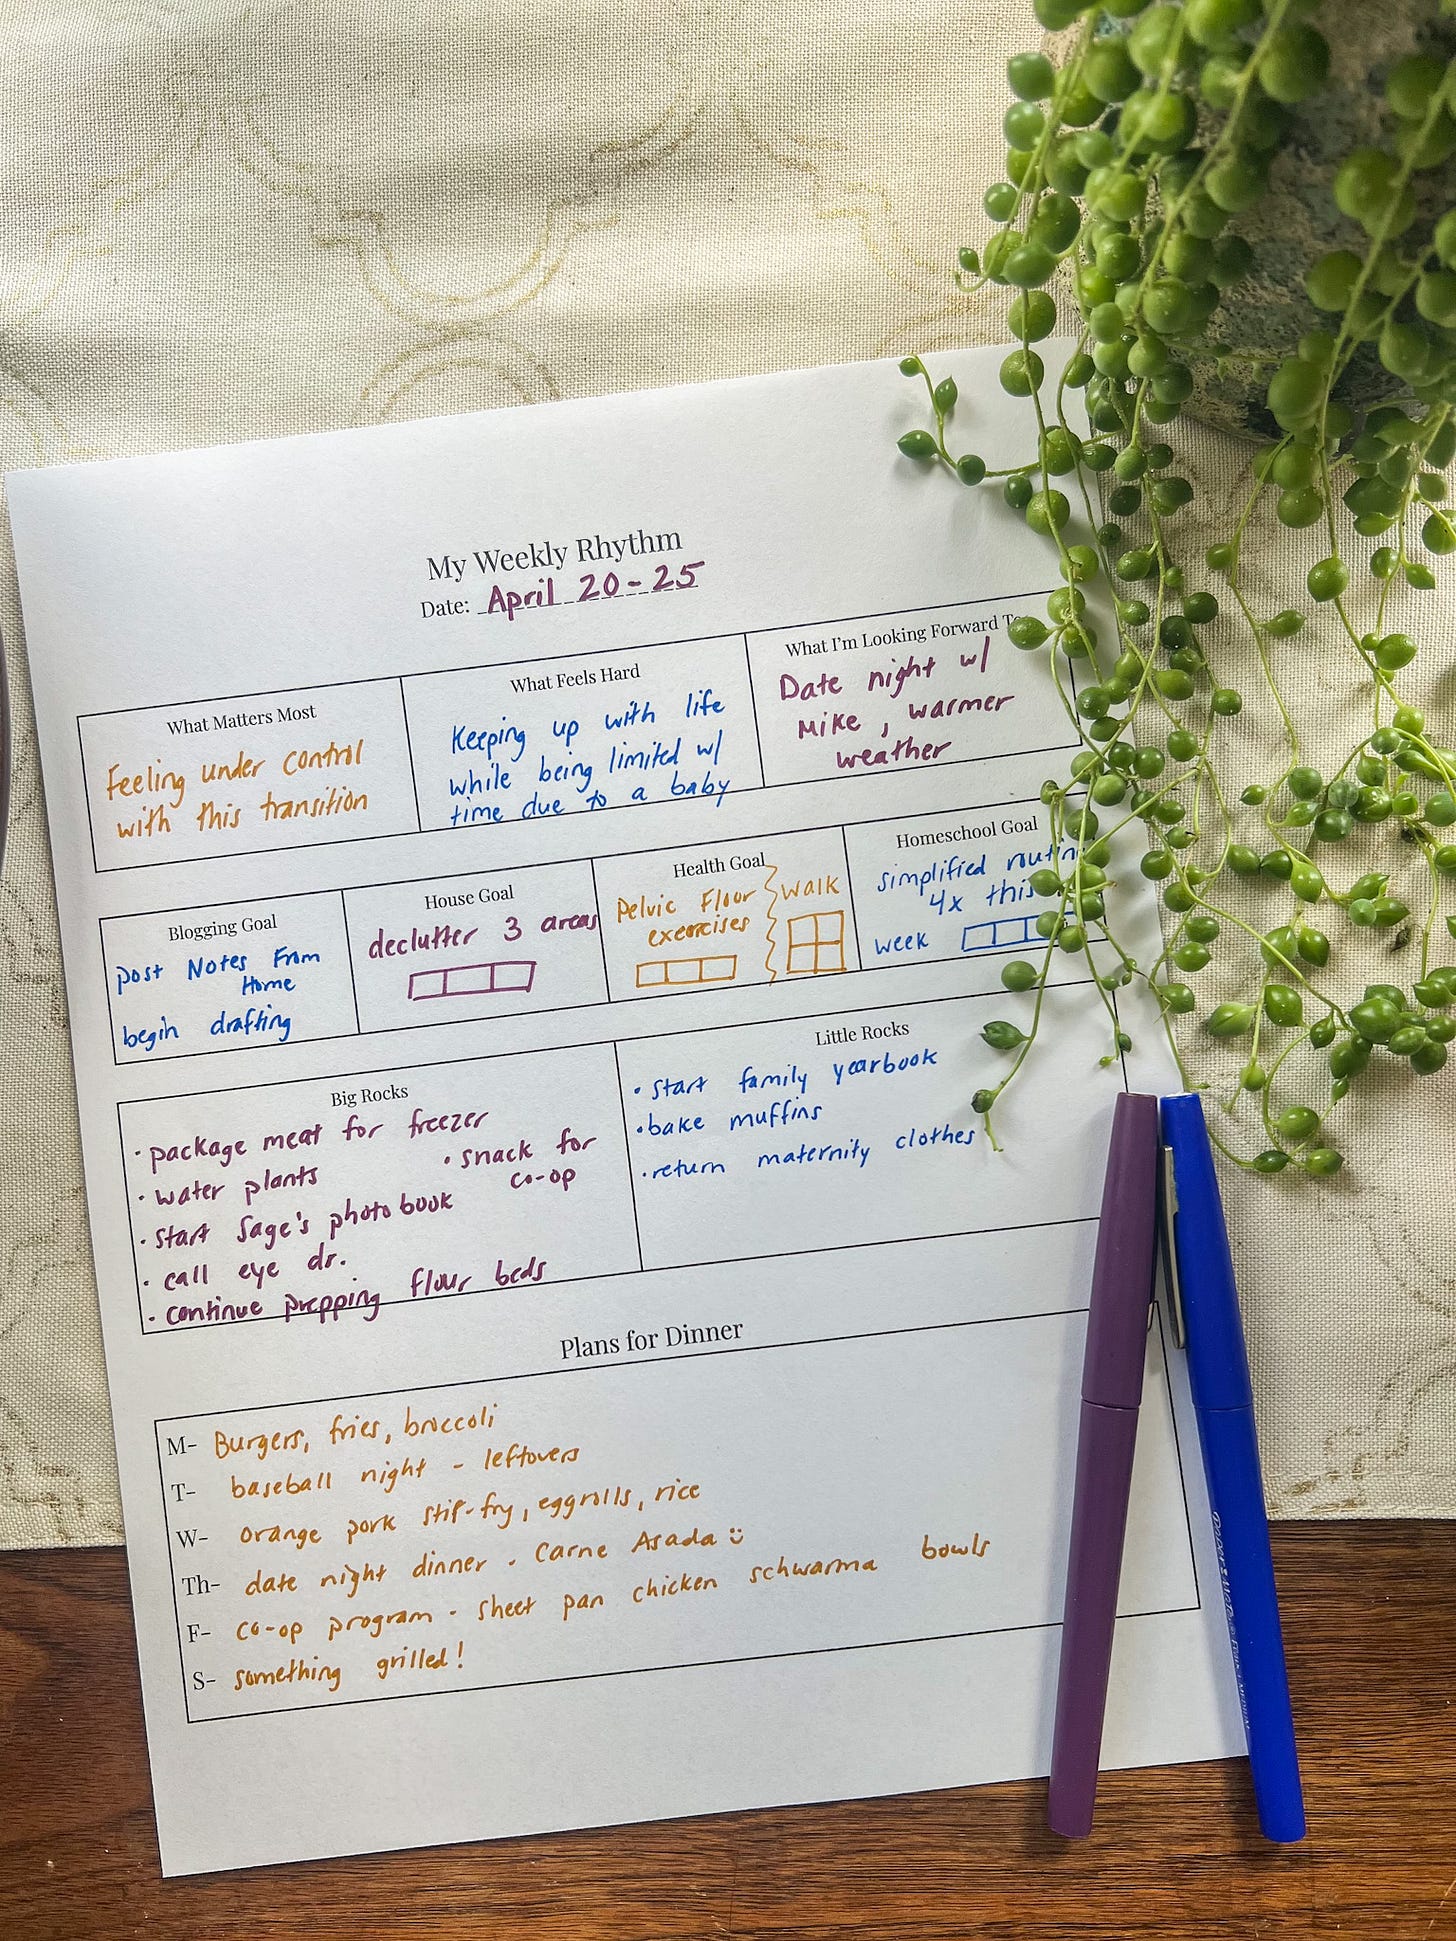 My Weekly Rhythm
Date: April 20-25
What Matters Most
Feeling under control
with this transition
What Feels Hard
Keeping up with life
while being limited w/
time due to a baby
What I'm Looking Forward
Date night w/
Mike, warmer
weather
Blogging Goal
post Notes From
Home
begin drafting
House Goal
declutter 3 areas
Health Goal
Pelvic Floor
exercises
walk
Homeschool Goal
simplified
4x this
week
Big Rocks
· package meat for freezer
· water plants
· snack for
co-op
· start Sage's photobook
· call eye dr.
· continue prepping flour beds
Little Rocks
· start family yearbook
· bake muffins
· return maternity clothes
Plans for Dinner
M- Burgers, fries, broccoli
T- baseball night - leftovers
W- orange pork stir-fry, eggrolls, rice
Th- date night dinner - Carne Asada :)
F- co-op program - sheet pan chicken schwarma bowls
S- something grilled!